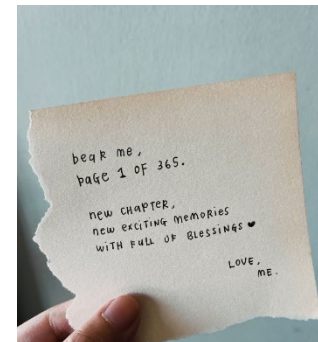 bear me,
page 1 of 365.
new chapter,
new exciting memories
with full of blessings ♥
love,
me.